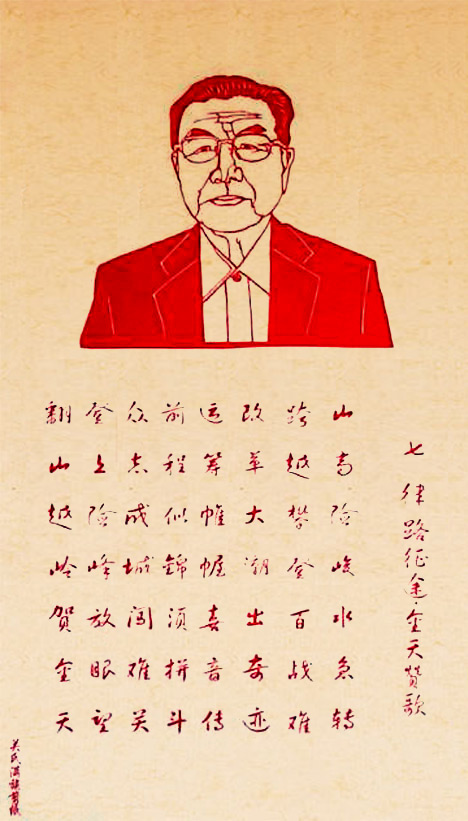 七律路征途·金天赞歌
山高险峻水急转
跨越攀登百战难
改革大潮出奇迹
运筹帷幄喜音传
前程似锦须拼斗
众志成城闯难关
登上险峰放眼望
翻山越岭贺金天
吴氏满族剪纸